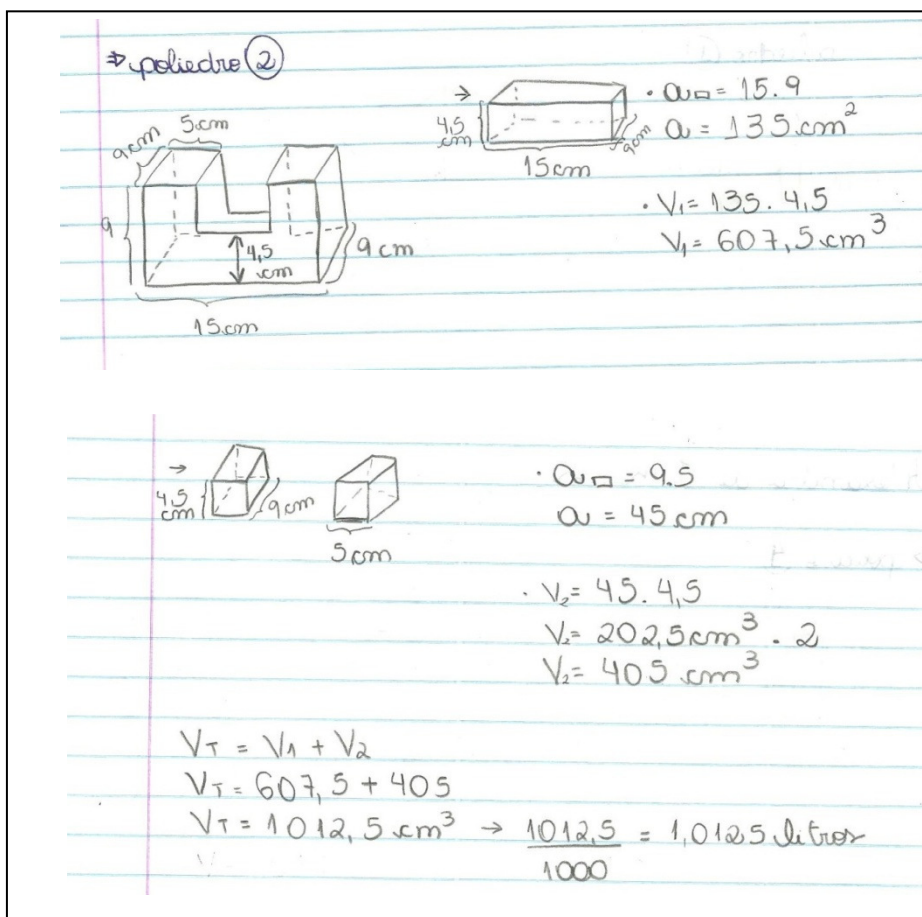 ⇒ poliedro ②
9cm 5cm
9
4,5
cm
9cm
15cm
→ 4,5
cm
9cm
15cm
· a▭ = 15.9
a = 135cm²
· V₁ = 135. 4,5
V₁ = 607,5cm³
→
4,5
cm
9cm
5cm
· a▭ = 9.5
a = 45 cm
· V₂ = 45. 4,5
V₂ = 202,5cm³ . 2
V₂ = 405 cm³
V_T = V₁ + V₂
V_T = 607,5 + 405
V_T = 1012,5 cm³ → 1012,5/1000 = 1,0125 litros